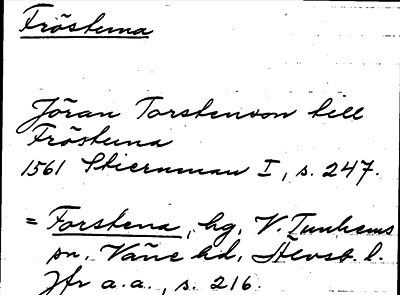 Fröstena
Jöran Torstenson till
Fröstena
1561 Stiernman I, s. 247.
= Forstena, hg, V. Tunhems
sn, Väne hd, Älvsb. l.
Jfr a.a., s. 216.